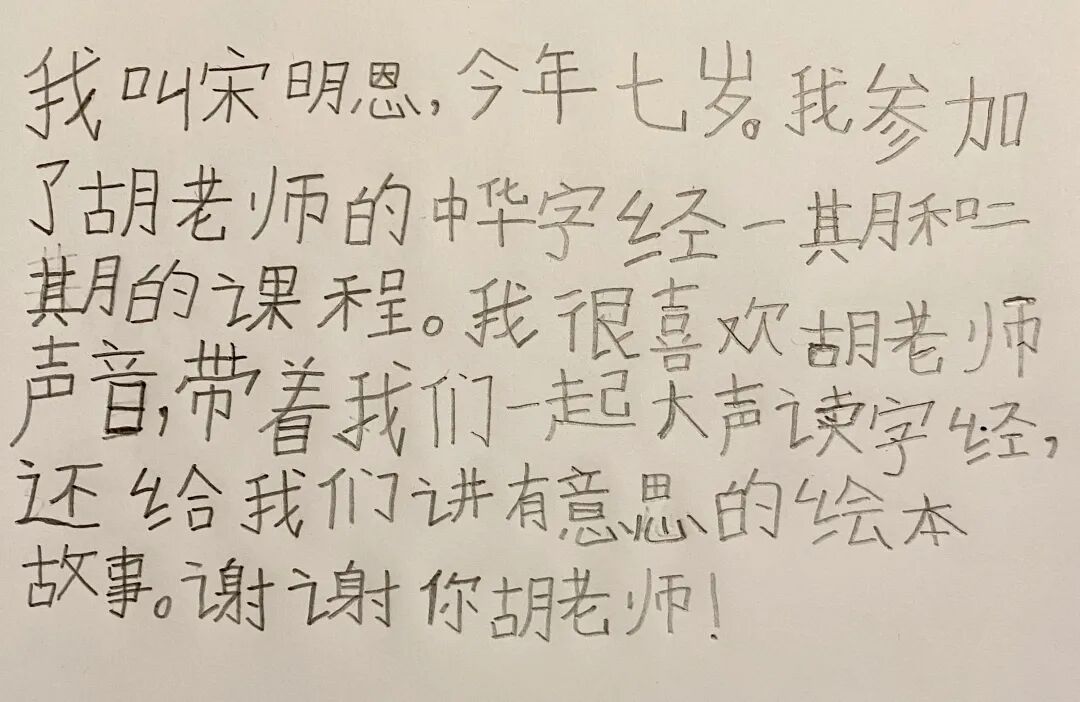 我叫宋明恩,今年七岁。我参加
了胡老师的中华字经一期和二
期的课程。我很喜欢胡老师
声音,带着我们一起大声读字经,
还给我们讲有意思的绘本
故事。谢谢你胡老师!